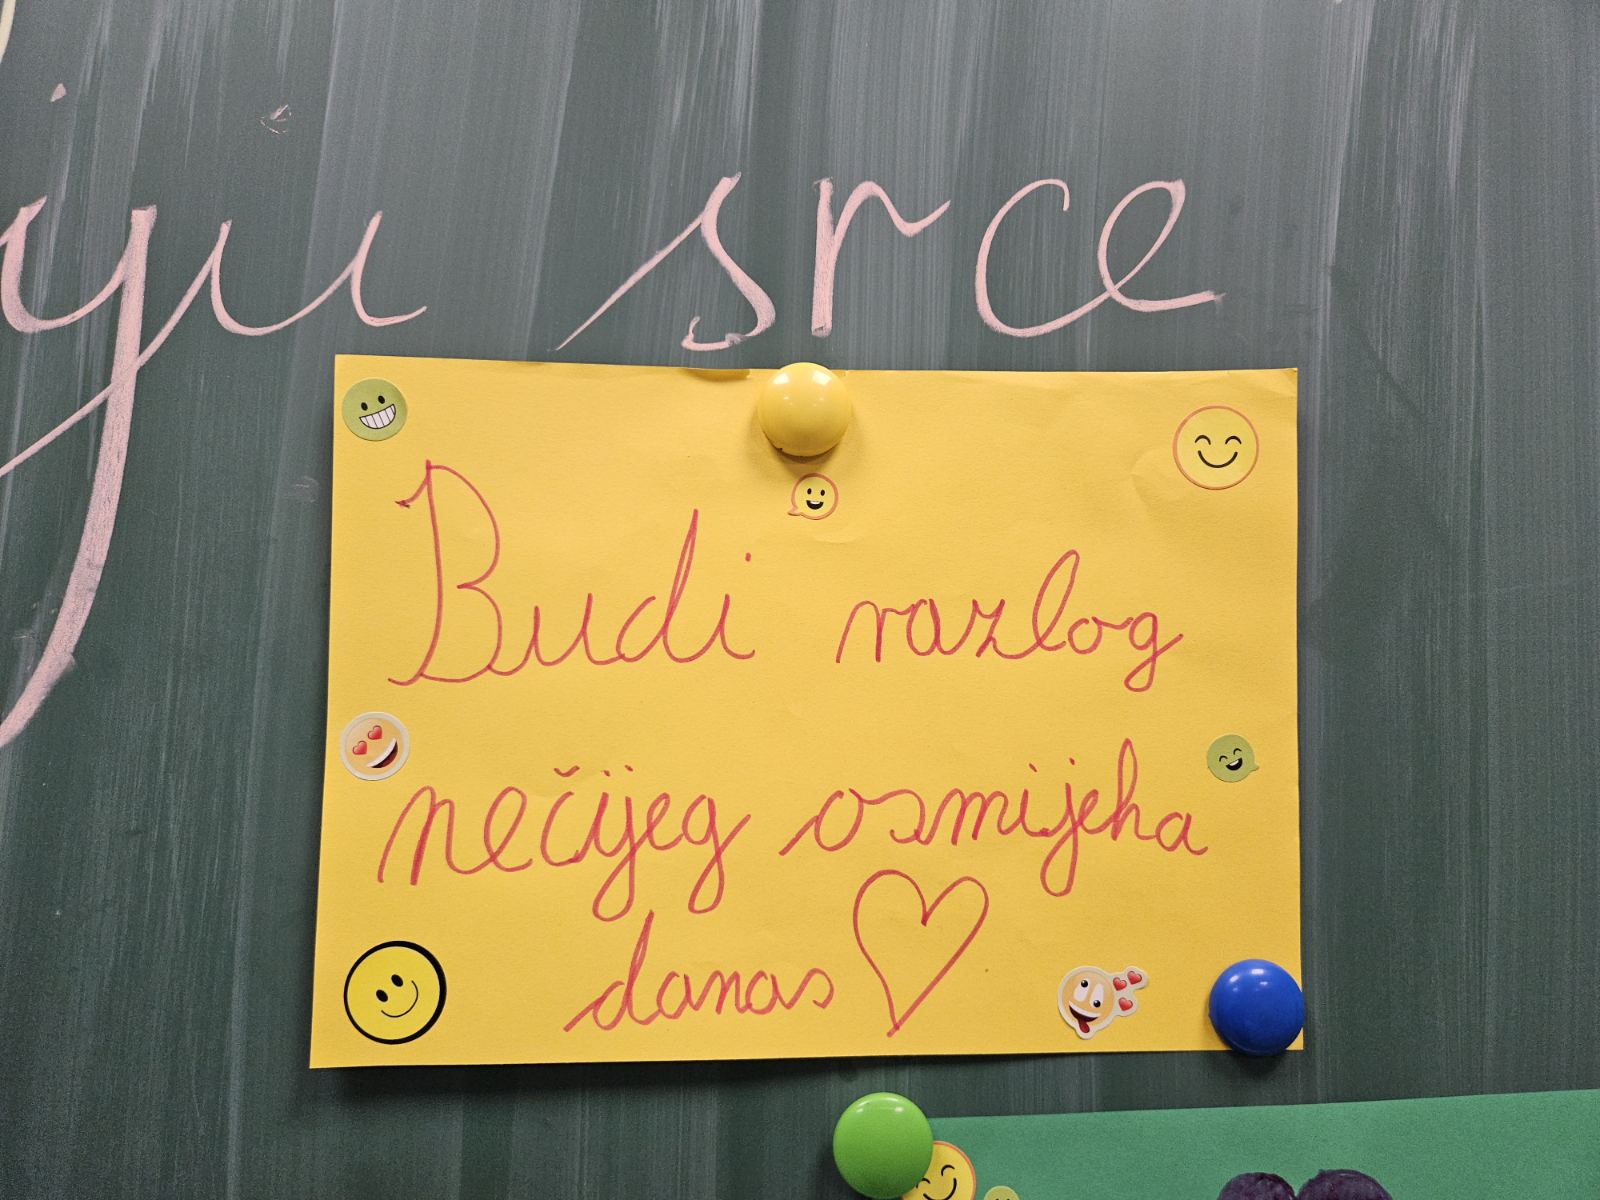 srce
Budi razlog
nečijeg osmijeha
danas